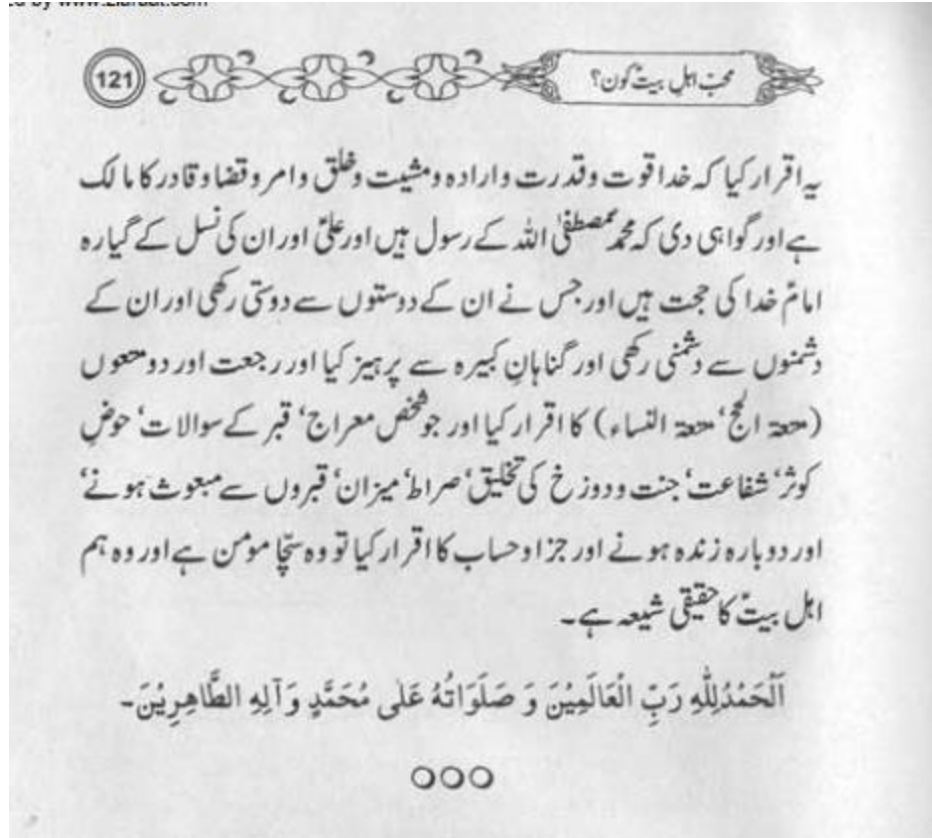 ed by www.ziaraat.com
121
محبّ اہلِ بیتؑ کون؟
یہ اقرار کیا کہ خدا قوت وقدرت وارادہ ومشیت وخلق وامر وقضا وقادر کا مالک
ہے اور گواہی دی کہ محمد مصطفیٰؐ اللہ کے رسول ہیں اور علیؑ اور ان کی نسل کے گیارہ
امامؑ خدا کی حجت ہیں اور جس نے ان کے دوستوں سے دوستی رکھی اور ان کے
دشمنوں سے دشمنی رکھی اور گناہانِ کبیرہ سے پرہیز کیا اور رجعت اور دو متعوں
(متعۃ الحج‘ متعۃ النساء) کا اقرار کیا اور جو شخص معراج‘ قبر کے سوالات‘ حوضِ
کوثر‘ شفاعت‘ جنت ودوزخ کی تخلیق‘ صراط‘ میزان‘ قبروں سے مبعوث ہونے‘
اور دوبارہ زندہ ہونے اور جزا وحساب کا اقرار کیا تو وہ سچّا مومن ہے اور وہ ہم
اہل بیتؑ کا حقیقی شیعہ ہے۔
اَلْحَمْدُلِلّٰهِ رَبِّ الْعَالَمِيْنَ وَ صَلَوَاتُهُ عَلٰى مُحَمَّدٍ وَ آلِهِ الطَّاهِرِيْنَ۔